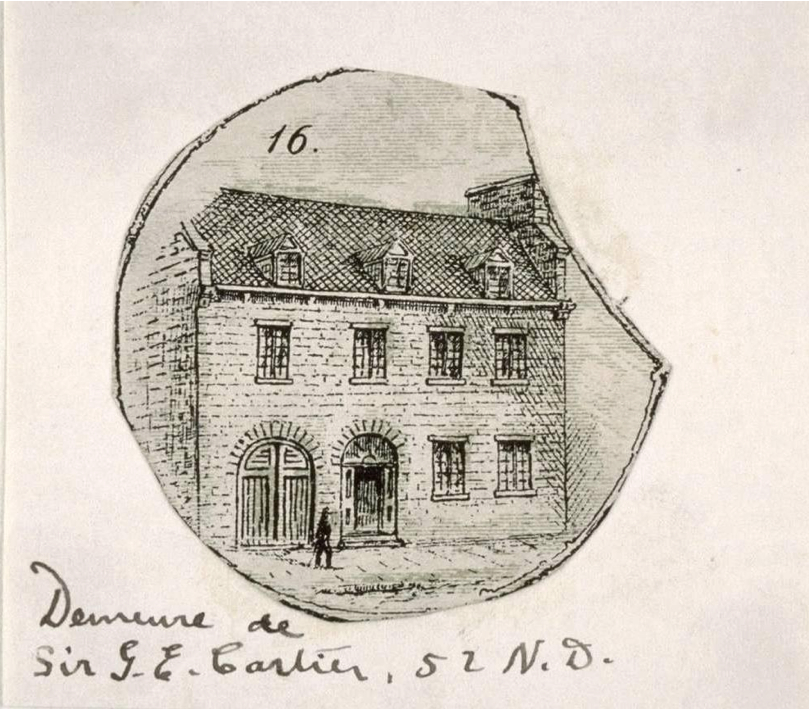 16.
Demeure de
Sir G. E. Cartier, 52 N. D.